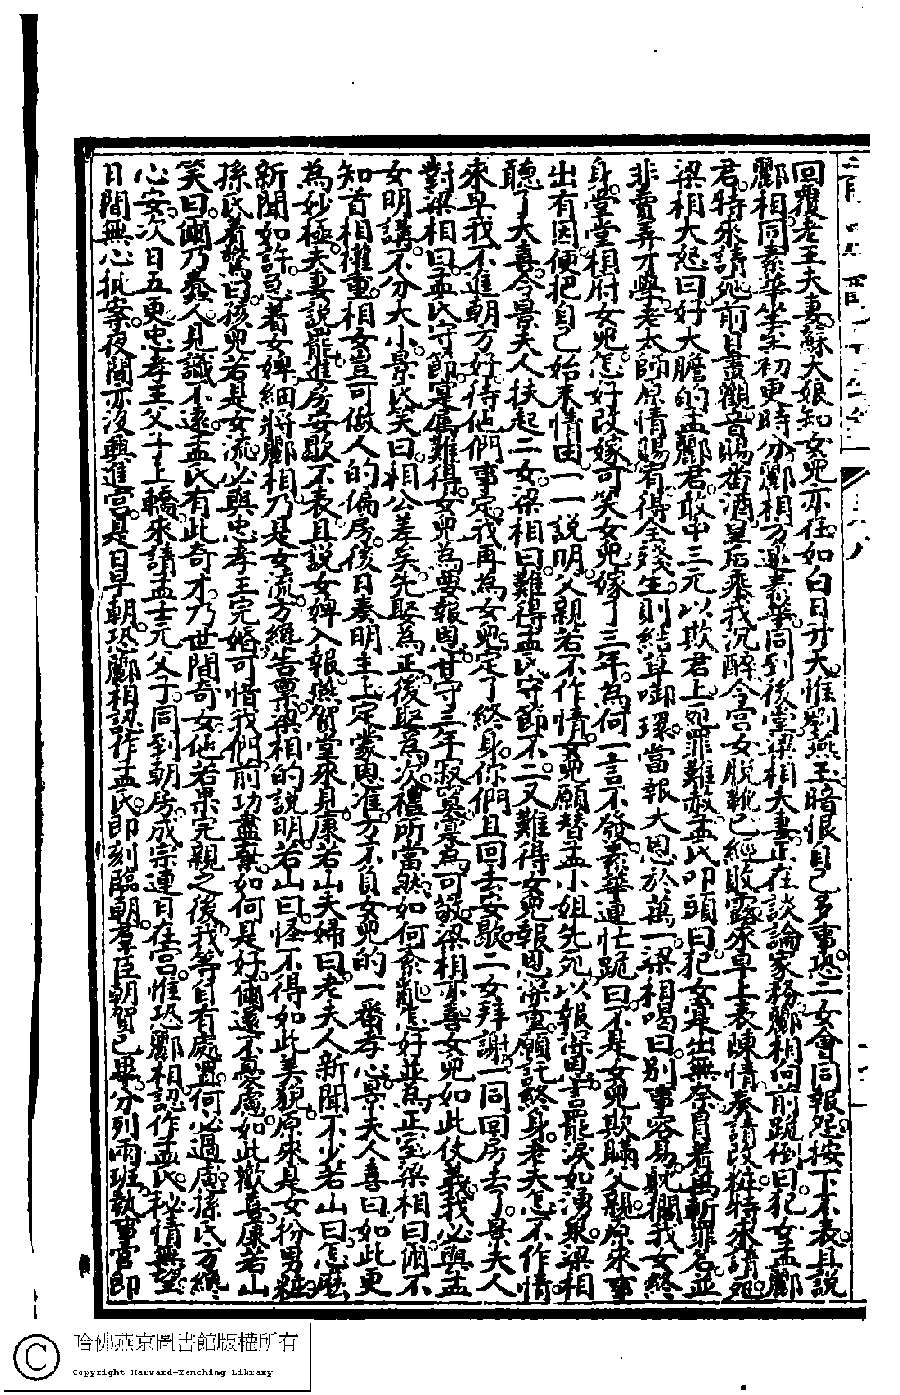 回覆老王夫妻蘇大娘知女兒亦在如白日升天惟劉燕玉暗恨自己多事恐二女會同報怨按下不表且說
酈相同素華坐至初更時分酈相方邀素華同到後堂梁相夫妻正在談論家務酈相向前跪倒曰犯女孟酈
君特來請死前日畫觀音賜番酒皇后乘我沉醉令宮女脫靴已經敗露來早上表陳情奏請改粧特來請死
梁相大怒曰好大膽的孟酈君敢中三元以欺君上死罪難赦孟氏叩頭曰犯女寔出無奈冒着萬斬罪名並
非賣弄才學老太師原情賜宥得全殘生則結草啣環當報大恩於萬一梁相喝曰別事容易躭擱我女終
身堂堂相府女兒怎好改嫁可笑女兒嫁了三年為何一言不發素華連忙跪曰不是女兒欺瞞父親原來事
出有因便把自己始末情由一一說明父親若不作情女兒願替孟小姐先死以報深恩言罷淚如湧泉梁相
聽了大喜令景夫人扶起二女梁相曰難得孟氏守節不二又難得女兒報恩深重願託終身老夫怎不作情
來早我不進朝方好待他們事定我再為女兒定了終身你們且回去安歇二女拜謝一同回房去了景夫人
對梁相曰孟氏守節寔屬難得女兒為要報恩甘守三年寂寞寔為可敬梁相亦喜女兒如此仗義我必與孟
女明講不分大小景氏笑曰相公差矣先娶為正後娶為次禮所當然如何紊亂怎好並為正室梁相曰爾不
知首相權重相女豈可做人的偏房後日奏明主上定蒙恩准方不負女兒的一番孝心景夫人喜曰如此更
為妙極夫妻說罷進房安歇不表且說女婢入報燕賀堂來見康若山夫婦曰老夫人新聞不少若山曰怎麼
新聞如許急著女婢細將酈相乃是女流方纔告稟梁相的說明若山曰怪不得如此美貌原來是女扮男粧
孫氏着驚曰孩兒若是女流必與忠孝王完婚可惜我們前功盡棄如何是好爾還不憂慮如此歡喜康若山
笑曰爾乃蠢人見識不遠孟氏有此奇才乃世間奇女他若果完親之後我等自有處置何必過慮孫氏方纔
心安次日五更忠孝王父子上轎來請孟士元父子同到朝房成宗連日在宮惟恐酈相認作孟氏秘情無望
日間無心批案夜間亦沒興進宮是日早朝恐酈相認作孟氏即刻臨朝羣臣朝賀已畢分列兩班執事官即
哈佛燕京圖書館版權所有
Copyright Harvard-Yenching Library